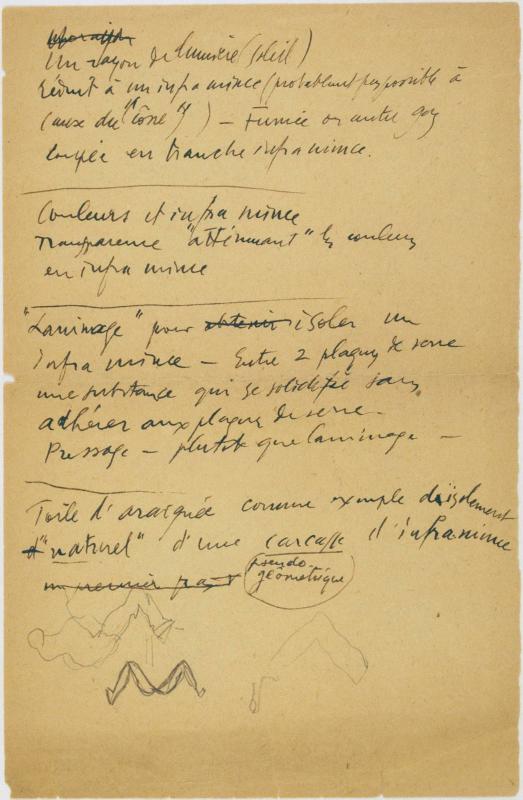 Un rayon de lumière (soleil)
réduit à un infra mince (probablement pas possible à
cause du "cône") – Fumée ou autre gaz
coupée en tranche infra mince.
Couleurs et infra mince
Transparence "atténuant" les couleurs
en infra mince
"Laminage" pour obtenir isoler un
infra mince – Entre 2 plaques de verre
une substance qui se solidifie sans
adhérer aux plaques de verre –
Pressage – plutôt que laminage –
Toile d'araignée comme exemple d'isolement
d'"naturel" d'une carcasse d'infra mince
un premier pas
pseudo
géométrique